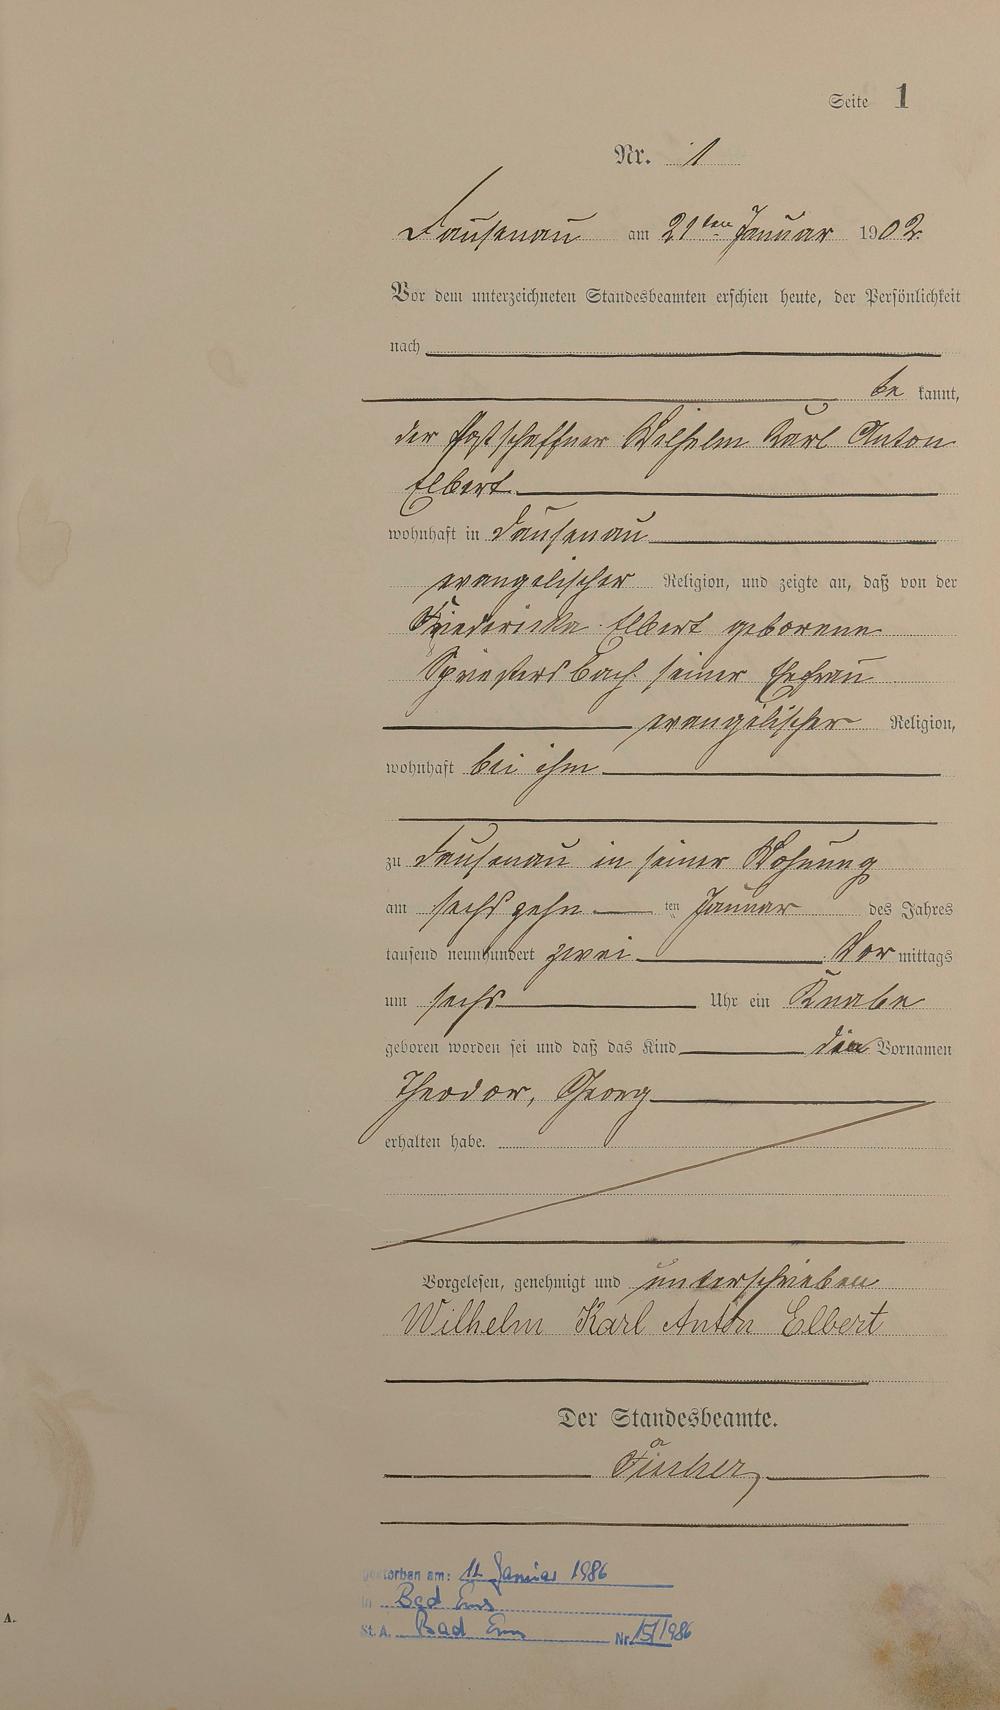 Seite 1
Nr. 1
Dausenau am 21ten Januar 1902
Vor dem unterzeichneten Standesbeamten erschien heute, der Persönlichkeit
nach
be kannt,
der Postschaffner Wilhelm Karl Anton
Elbert
wohnhaft in Dausenau
evangelischer Religion, und zeigte an, daß von der
Friedericka Elbert geborene
Spriestersbach seiner Ehefrau
evangelischer Religion,
wohnhaft bei ihm
zu Dausenau in seiner Wohnung
am sechszehn ten Januar des Jahres
tausend neunhundert zwei Vor mittags
um sechs Uhr ein Knabe
geboren worden sei und daß das Kind die Vornamen
Theodor, Georg
erhalten habe.
Vorgelesen, genehmigt und unterschrieben
Wilhelm Karl Anton Elbert
Der Standesbeamte.
gestorben am: 11. Januar 1986
in Bad Ems
St. A. Bad Ems Nr. 15/1986
A.